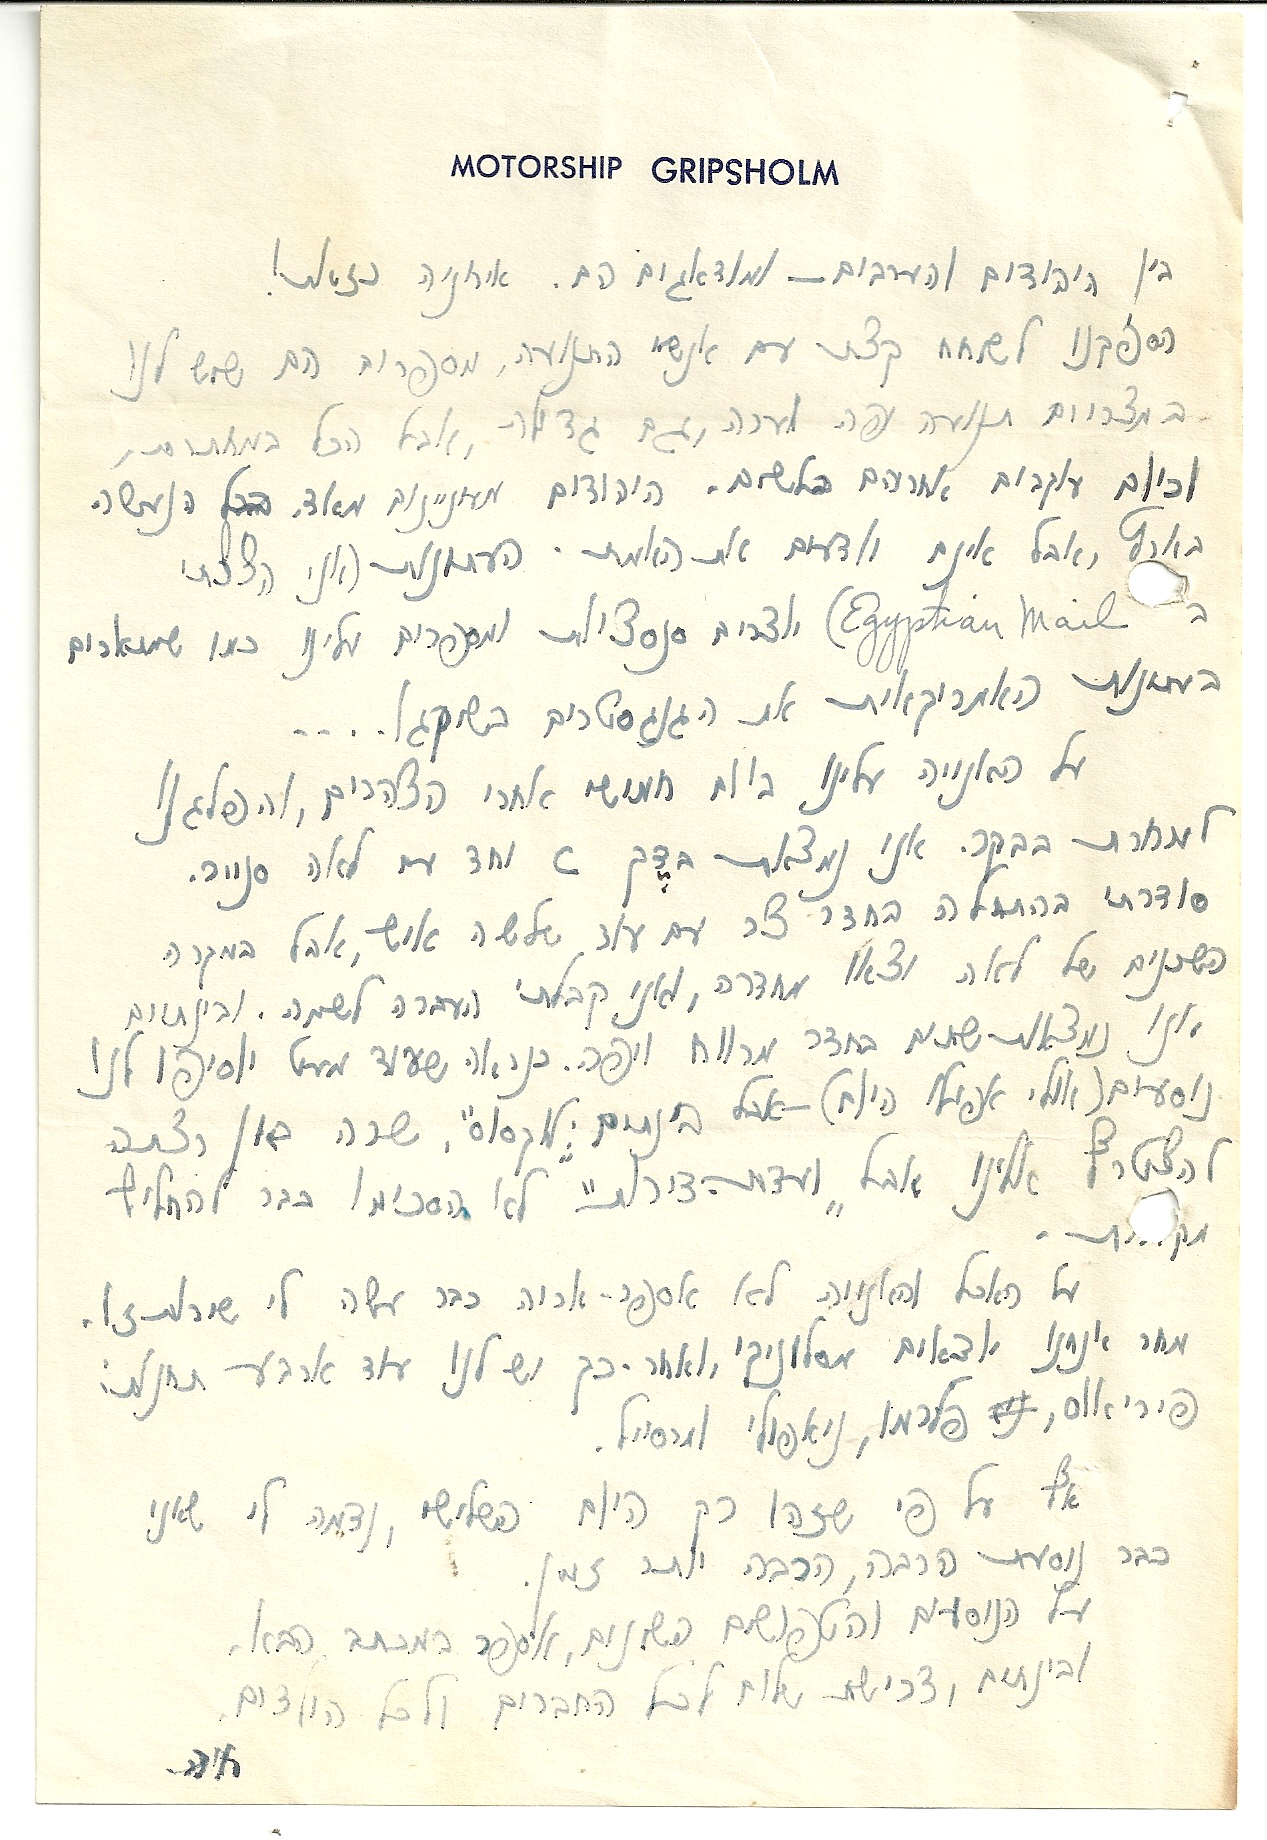 MOTORSHIP GRIPSHOLM
בין היהודים והערבים – ומודאגים הם. אירוניה כזאת!
הספקנו לשוחח קצת עם אנשי התנועה, מספרים הם שיש לנו
במצרים תנועה יפה וערה, וגם גדולה, אבל הכל במחתרת,
וכיום עוקבים אחריהם בלשים. היהודים מעוניינים מאד בכל הנעשה
בארץ, אבל אינם יודעים את האמת. העתונות (אני הצצתי
ב Egyptian Mail) יוצרים סנסציות ומספרים עלינו כמו שמתארים
בעתונות האמריקאית את הגנגסטרים בשיקגו....
על האנייה עלינו ביום חמישי אחרי הצהרים, והפלגנו
למחרת בבקר. אני נמצאת בדק C יחד עם לאה סנייר.
סודרתי בהתחלה בחדר צר עם עוד שלשה איש, אבל במקרה
השכנים של לאה יצאו מחדרה, ואני קבלתי העברה לשמה. ובינתיים
אנו נמצאות שתים בחדר מרווח ויפה. כנראה שעוד מעט יוסיפו לנו
נוסעים (אולי אפילו היום) – אבל בינתים "לוקסוס", שרה רצתה
להצטרף אלינו אבל "ועדת-דירות" לא הסכימו כבר להחליף
על האכל והאנייה לא אספר – אריה כבר עשה לי שירות זו.
מחר אנחנו יוצאים מסלוניקי, ואחר-כך יש לנו עוד ארבע תחנות:
פיריאוס, פלרמו, ניאפולי ומרסייל.
אף על פי שזהו רק היום השלישי, נדמה לי שאני
כבר נוסעת הרבה, הרבה יותר זמן.
על הנוסעים והטפוסים השונים, אספר במכתב הבא.
ובינתים, דרישת שלום לכל החברים ולכל הילדים.